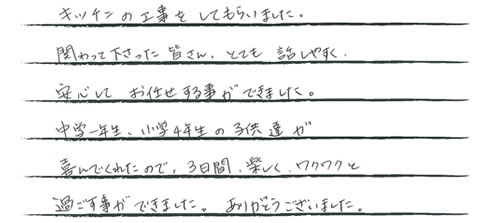 キッチンの工事をしてもらいました。
関わって下さった皆さん、とても話しやすく、
安心してお任せする事ができました。
中学一年生、小学4年生の子供達が
喜んでくれたので、3日間、楽しく、ワクワクと
過ごす事ができました。ありがとうございました。